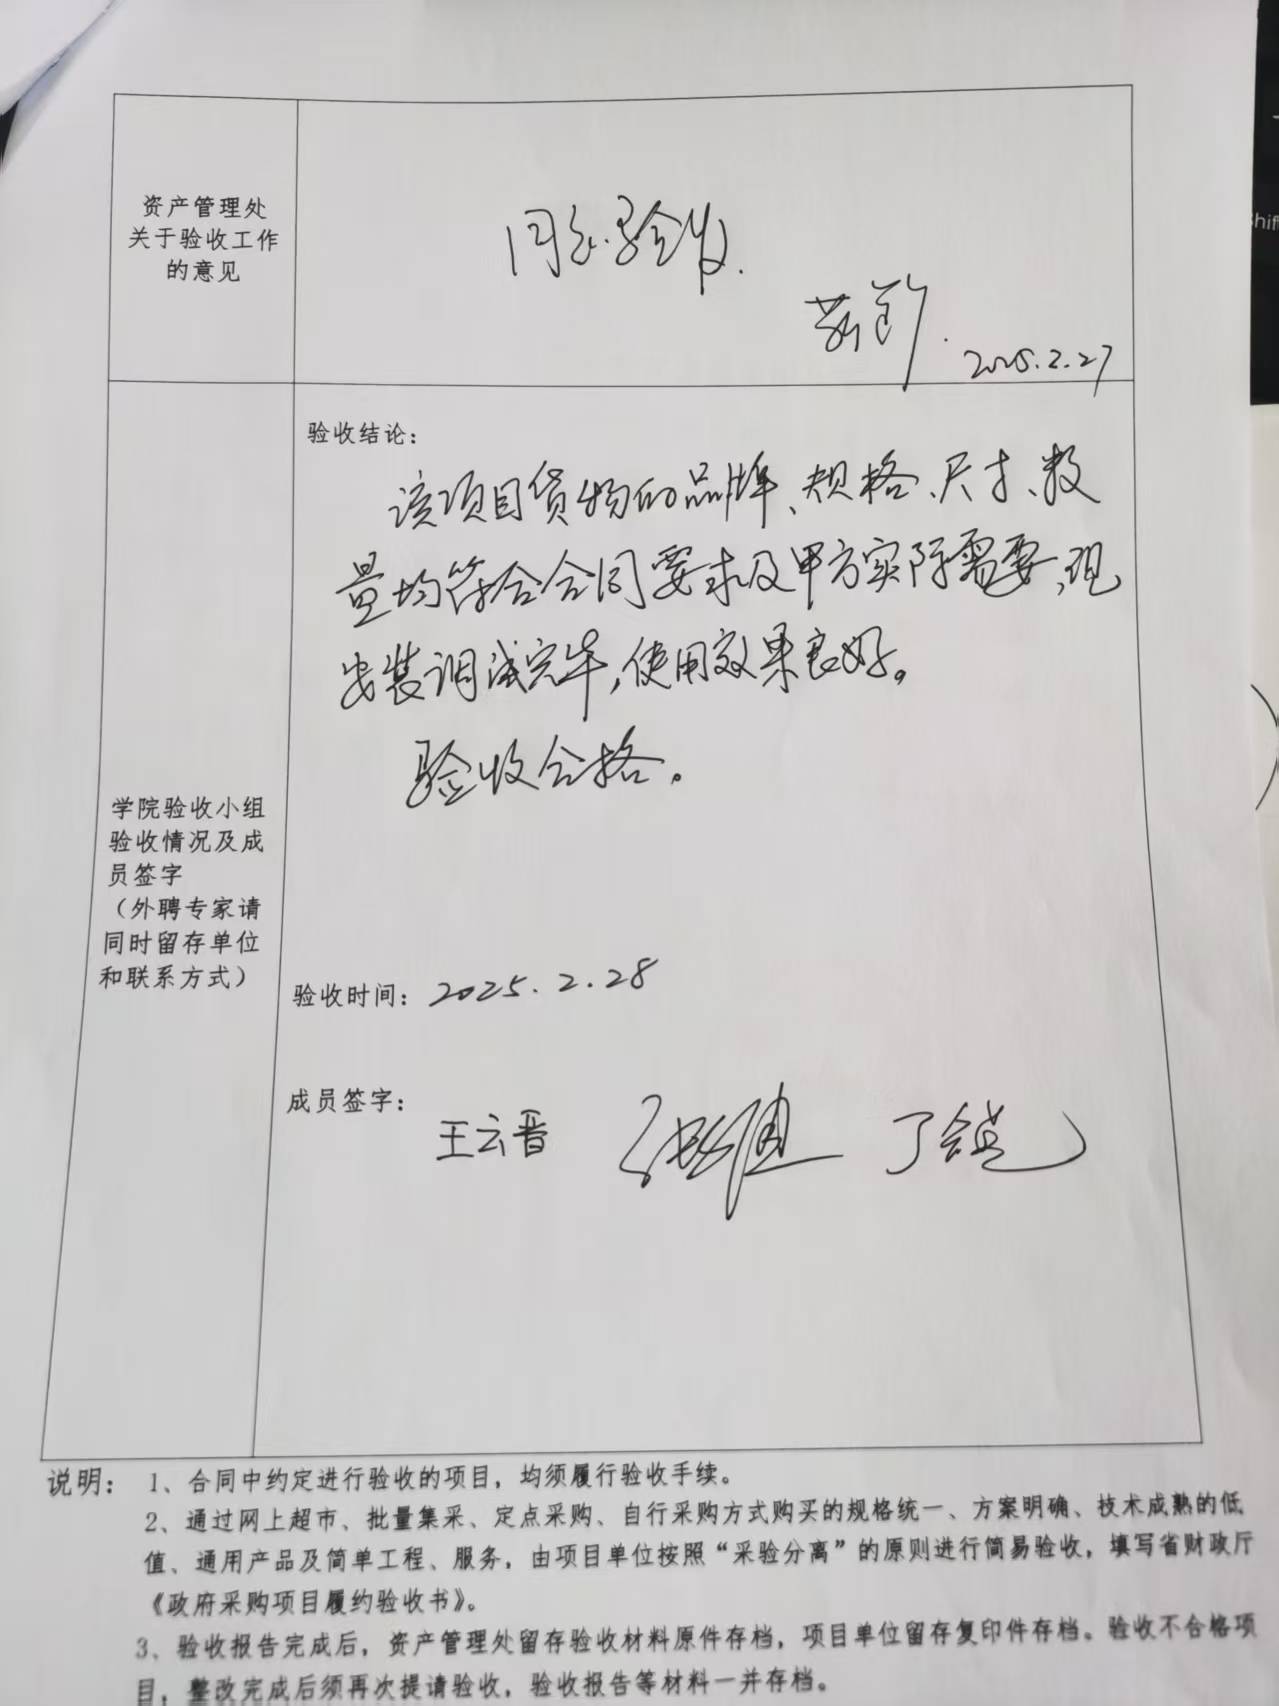 资产管理处
关于验收工作
的意见
同意验收.
2025.2.27
验收结论：
该项目货物的品牌、规格、尺寸、数
量均符合合同要求及甲方实际需要，现
安装调试完毕，使用效果良好。
验收合格。
学院验收小组
验收情况及成
员签字
（外聘专家请
同时留存单位
和联系方式）
验收时间：2025.2.28
成员签字：
王云晋
说明：1、合同中约定进行验收的项目，均须履行验收手续。
2、通过网上超市、批量集采、定点采购、自行采购方式购买的规格统一、方案明确、技术成熟的低
值、通用产品及简单工程、服务，由项目单位按照“采验分离”的原则进行简易验收，填写省财政厅
《政府采购项目履约验收书》。
3、验收报告完成后，资产管理处留存验收材料原件存档，项目单位留存复印件存档。验收不合格项
目，整改完成后须再次提请验收，验收报告等材料一并存档。